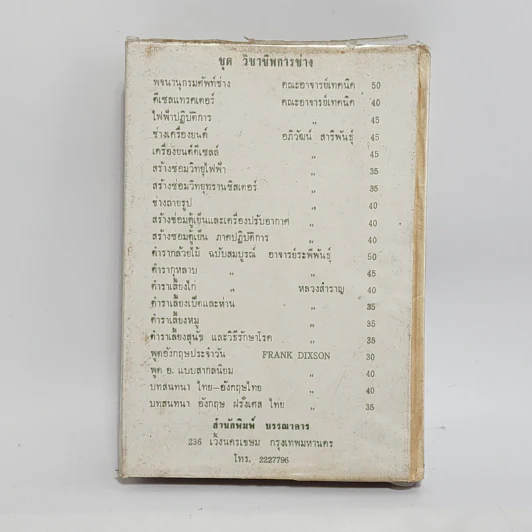 ชุด วิชาชีพการช่าง
พจนานุกรมศัพท์ช่าง คณะอาจารย์เทคนิค 50
ดีเซลแทรคเตอร์ คณะอาจารย์เทคนิค 40
ไฟฟ้าปฏิบัติการ " 45
ช่างเครื่องยนต์ อภิวัฒน์ สาริพันธุ์ 45
เครื่องยนต์ดีเซลล์ " 45
สร้างซ่อมวิทยุไฟฟ้า " 35
สร้างซ่อมวิทยุทรานซิสเตอร์ " 35
ช่างถ่ายรูป " 40
สร้างซ่อมตู้เย็นและเครื่องปรับอากาศ " 40
สร้างซ่อมตู้เย็น ภาคปฏิบัติการ " 40
ตำรากล้วยไม้ ฉบับสมบูรณ์ อาจารย์ระพีพันธุ์ 50
ตำรากุหลาบ " " 45
ตำราเลี้ยงไก่ " หลวงสำราญ 40
ตำราเลี้ยงเป็ดและห่าน " 35
ตำราเลี้ยงหมู " 35
ตำราเลี้ยงสุนัข และวิธีรักษาโรค " 35
พูดอังกฤษประจำวัน FRANK DIXSON 30
พูด อ. แบบสากลนิยม " 40
บทสนทนา ไทย–อังกฤษไทย " 40
บทสนทนา อังกฤษ ฝรั่งเศส ไทย " 35
สำนักพิมพ์ บรรณาคาร
236 เวิ้งนครเขษม กรุงเทพมหานคร
โทร. 2227796